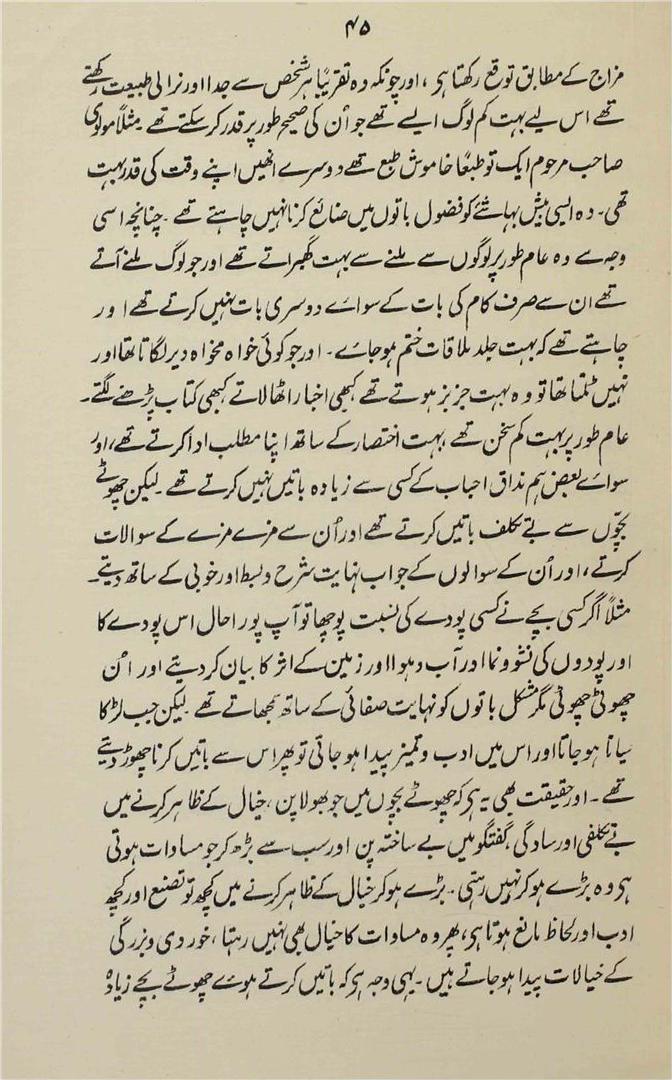 ۴۵
مزاج کے مطابق توقع رکھتا ہی، اور چونکہ وہ تقریباً ہر شخص سے جدا اور نرالی طبیعت رکھتے
تھے اس لیے بہت کم لوگ ایسے تھے جو اُن کی صحیح طور پر قدر کر سکتے تھے۔ مثلاً مولوی
صاحب مرحوم ایک تو طبعاً خاموش طبع تھے دوسرے انھیں اپنے وقت کی قدر بہت
تھی۔ وہ ایسی بیش بہا شئے کو فضول باتوں میں ضائع کرنا نہیں چاہتے تھے۔ چنانچہ اسی
وجہ سے وہ عام طور پر لوگوں سے ملنے سے بہت گھبراتے تھے اور جو لوگ ملنے آتے
تھے ان سے صرف کام کی بات کے سواے دوسری بات نہیں کرتے تھے اور
چاہتے تھے کہ بہت جلد ملاقات ختم ہو جاے۔ اور جو کوئی خواہ مخواہ دیر لگاتا تھا اور
نہیں ٹلتا تھا تو وہ بہت جزبز ہوتے تھے کبھی اخبار اٹھا لاتے کبھی کتاب پڑھنے لگتے۔
عام طور پر بہت کم سخن تھے، بہت اختصار کے ساتھ اپنا مطلب ادا کرتے تھے، اور
سواے بعض ہم مذاق احباب کے کسی سے زیادہ باتیں نہیں کرتے تھے۔ لیکن چھوٹے
بچّوں سے بے تکلف باتیں کرتے تھے اور اُن سے مزے مزے کے سوالات
کرتے، اور اُن کے سوالوں کے جواب نہایت شرح و بسط اور خوبی کے ساتھ دیتے۔
مثلاً اگر کسی بچے نے کسی پودے کی نسبت پوچھا تو آپ پورا حال اس پودے کا
اور پودوں کی نشوونما اور آب و ہوا اور زمین کے اثر کا بیان کر دیتے اور اُن
چھوٹی چھوٹی مگر مشکل باتوں کو نہایت صفائی کے ساتھ سمجھاتے تھے۔ لیکن جب لڑکا
سیانا ہو جاتا اور اس میں ادب و تمیز پیدا ہو جاتی تو پھر اس سے باتیں کرنا چھوڑ دیتے
تھے۔ اور حقیقت بھی یہ ہی کہ چھوٹے بچوں میں جو بھولا پن، خیال کے ظاہر کرنے میں
بے تکلفی اور سادگی، گفتگو میں بے ساختہ پن اور سب سے بڑھ کر جو مساوات ہوتی
ہی وہ بڑے ہو کر نہیں رہتی۔ بڑے ہو کر خیال کے ظاہر کرنے میں کچھ تو تصنع اور کچھ
ادب اور لحاظ مانع ہوتا ہی، پھر وہ مساوات کا خیال بھی نہیں رہتا، خوردی و بزرگی
کے خیالات پیدا ہو جاتے ہیں۔ یہی وجہ ہی کہ باتیں کرتے ہوے چھوٹے بچے زیادہ